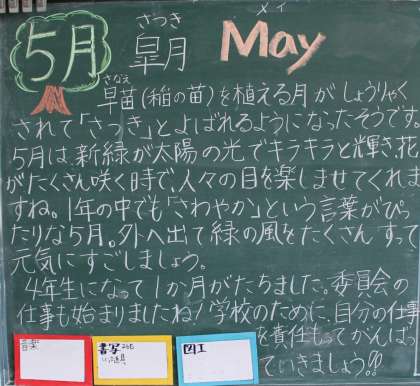 5月 皐月 May
さつき メイ
さなえ
早苗(稲の苗)を植える月がしょうりゃく
されて「さつき」とよばれるようになったそうです。
5月は、新緑が太陽の光でキラキラと輝き、花
がたくさん咲く時で、人々の目を楽しませてくれま
すね。1年の中でも「さわやか」という言葉がぴっ
たりな5月。外へ出て緑の風をたくさんすって
元気にすごしましょう。
4年生になって1か月がたちました。委員会の
仕事も始まりましたね!学校のために、自分の仕事
を責任もってがんばっ
ていきましょう!!
音楽
書写
図工